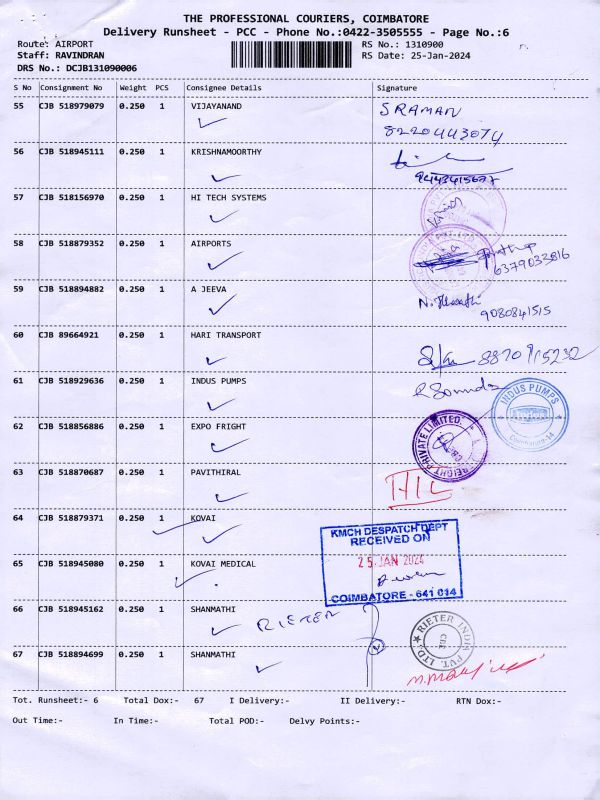 THE PROFESSIONAL COURIERS, COIMBATORE
Delivery Runsheet - PCC - Phone No.:0422-3505555 - Page No.:6
Route: AIRPORT RS No.: 1310900
Staff: RAVINDRAN RS Date: 25-Jan-2024
DRS No.: DCJB131090006
S No Consignment No Weight PCS Consignee Details Signature
55 CJB 518979079 0.250 1 VIJAYANAND SRAMAN
8220443074
56 CJB 518945111 0.250 1 KRISHNAMOORTHY
9443415677
57 CJB 518156970 0.250 1 HI TECH SYSTEMS
58 CJB 518879352 0.250 1 AIRPORTS
6379033816
59 CJB 518894882 0.250 1 A JEEVA
9080841515
60 CJB 89664921 0.250 1 HARI TRANSPORT
8870915232
61 CJB 518929636 0.250 1 INDUS PUMPS
INDUS PUMPS
Coimbatore-14
62 CJB 518856886 0.250 1 EXPO FRIGHT
FREIGHT PRIVATE LIMITED
63 CJB 518870687 0.250 1 PAVITHIRAL
HIL
64 CJB 518879371 0.250 1 KOVAI
KMCH DESPATCH DEPT
RECEIVED ON
65 CJB 518945080 0.250 1 KOVAI MEDICAL
25 JAN 2024
COIMBATORE - 641 014
66 CJB 518945162 0.250 1 SHANMATHI RIETER
RIETER INDIA PVT. LTD.
CBE
67 CJB 518894699 0.250 1 SHANMATHI
Tot. Runsheet:- 6 Total Dox:- 67 I Delivery:- II Delivery:- RTN Dox:-
Out Time:- In Time:- Total POD:- Delvy Points:-